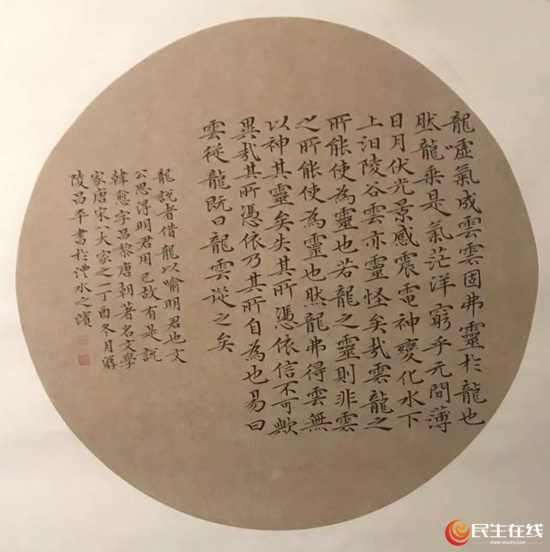 龍虛氣成雲雲固弗靈於龍也
然龍乘是氣茫洋窮乎元間薄
日月伏光景感震電神變化水下
上汩陵谷雲亦靈怪矣哉雲龍之
所能使為靈也若龍之靈則非雲
之所能使為靈也然龍弗得雲無
以神其靈矣失其所憑依信不可歟
異哉其所憑依乃其所自為也易曰
雲從龍既曰龍雲從之矣
龍說者借龍以喻明君也文
公思得明君用已故有是說
韓愈字昌黎唐朝著名文學
家唐宋八大家之一丁酉冬月
陵昌平書於澧水之濱
民生在线
WWW.MSZXFS.COM